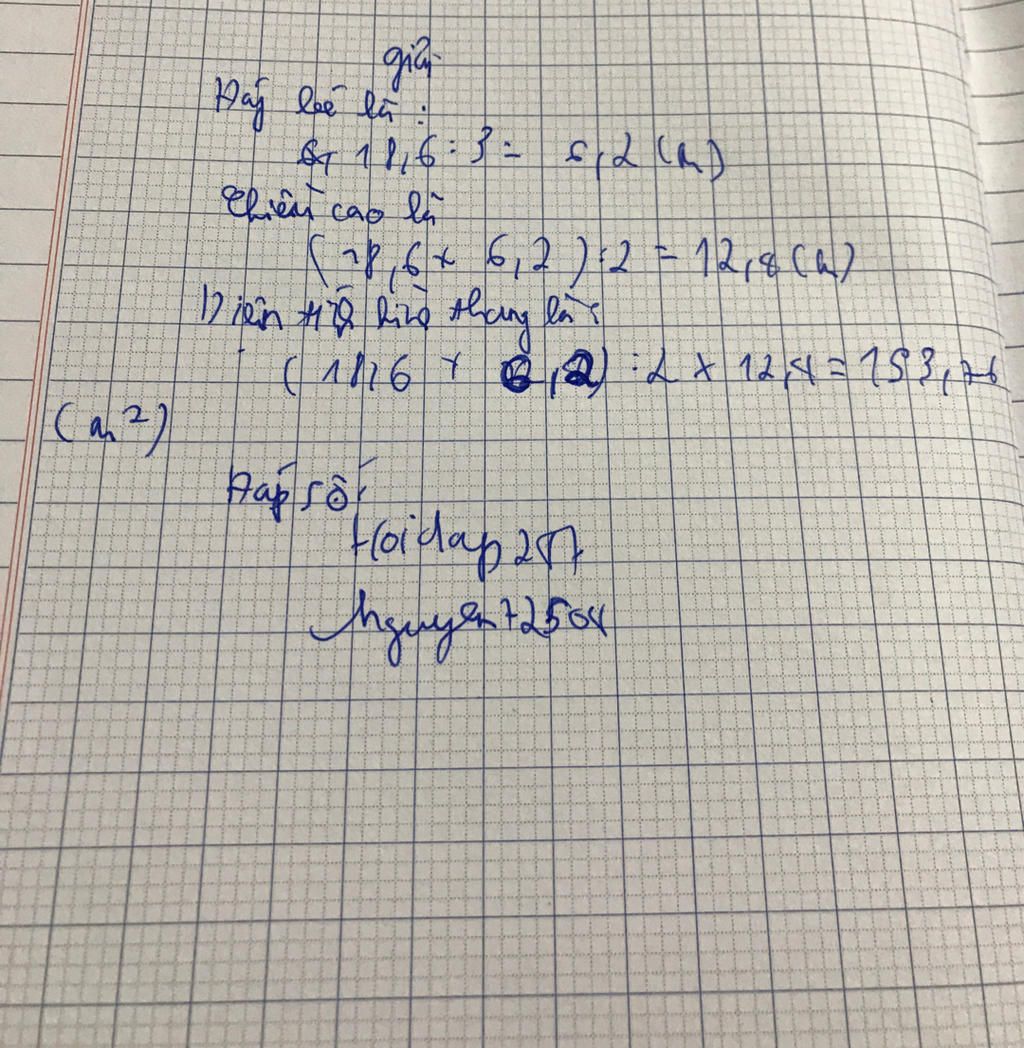 giải
Đáy bé là :
18,6 : 3 = 6,2 (m)
Chiều cao là
(18,6 + 6,2) : 2 = 12,4 (m)
Diện tích hình thang là :
(18,6 + 6,2) : 2 x 12,4 = 153,76
(m²)
Đáp số :
Hoidap247
Nguyen72504